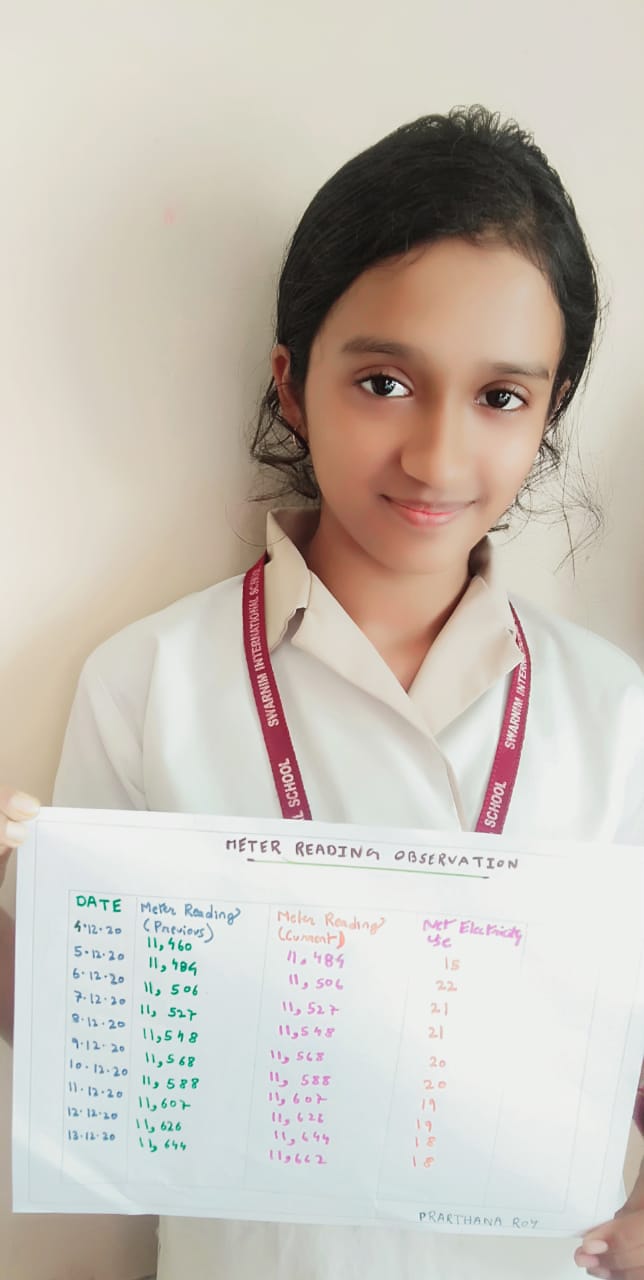 SWARNIM INTERNATIONAL SCHOOL
L SCHOOL
SWARNIM INTERN
SCHOOL
METER READING OBSERVATION
DATE Meter Reading (Previous) Meter Reading (Current) Net Electricity Use
4.12.20 11,460 11,484 15
5.12.20 11,484 11,506 22
6.12.20 11,506 11,527 21
7.12.20 11,527 11,548 21
8.12.20 11,548 11,568 20
9.12.20 11,568 11,588 20
10.12.20 11,588 11,607 19
11.12.20 11,607 11,626 19
12.12.20 11,626 11,644 18
13.12.20 11,644 11,662 18
PRARTHANA ROY